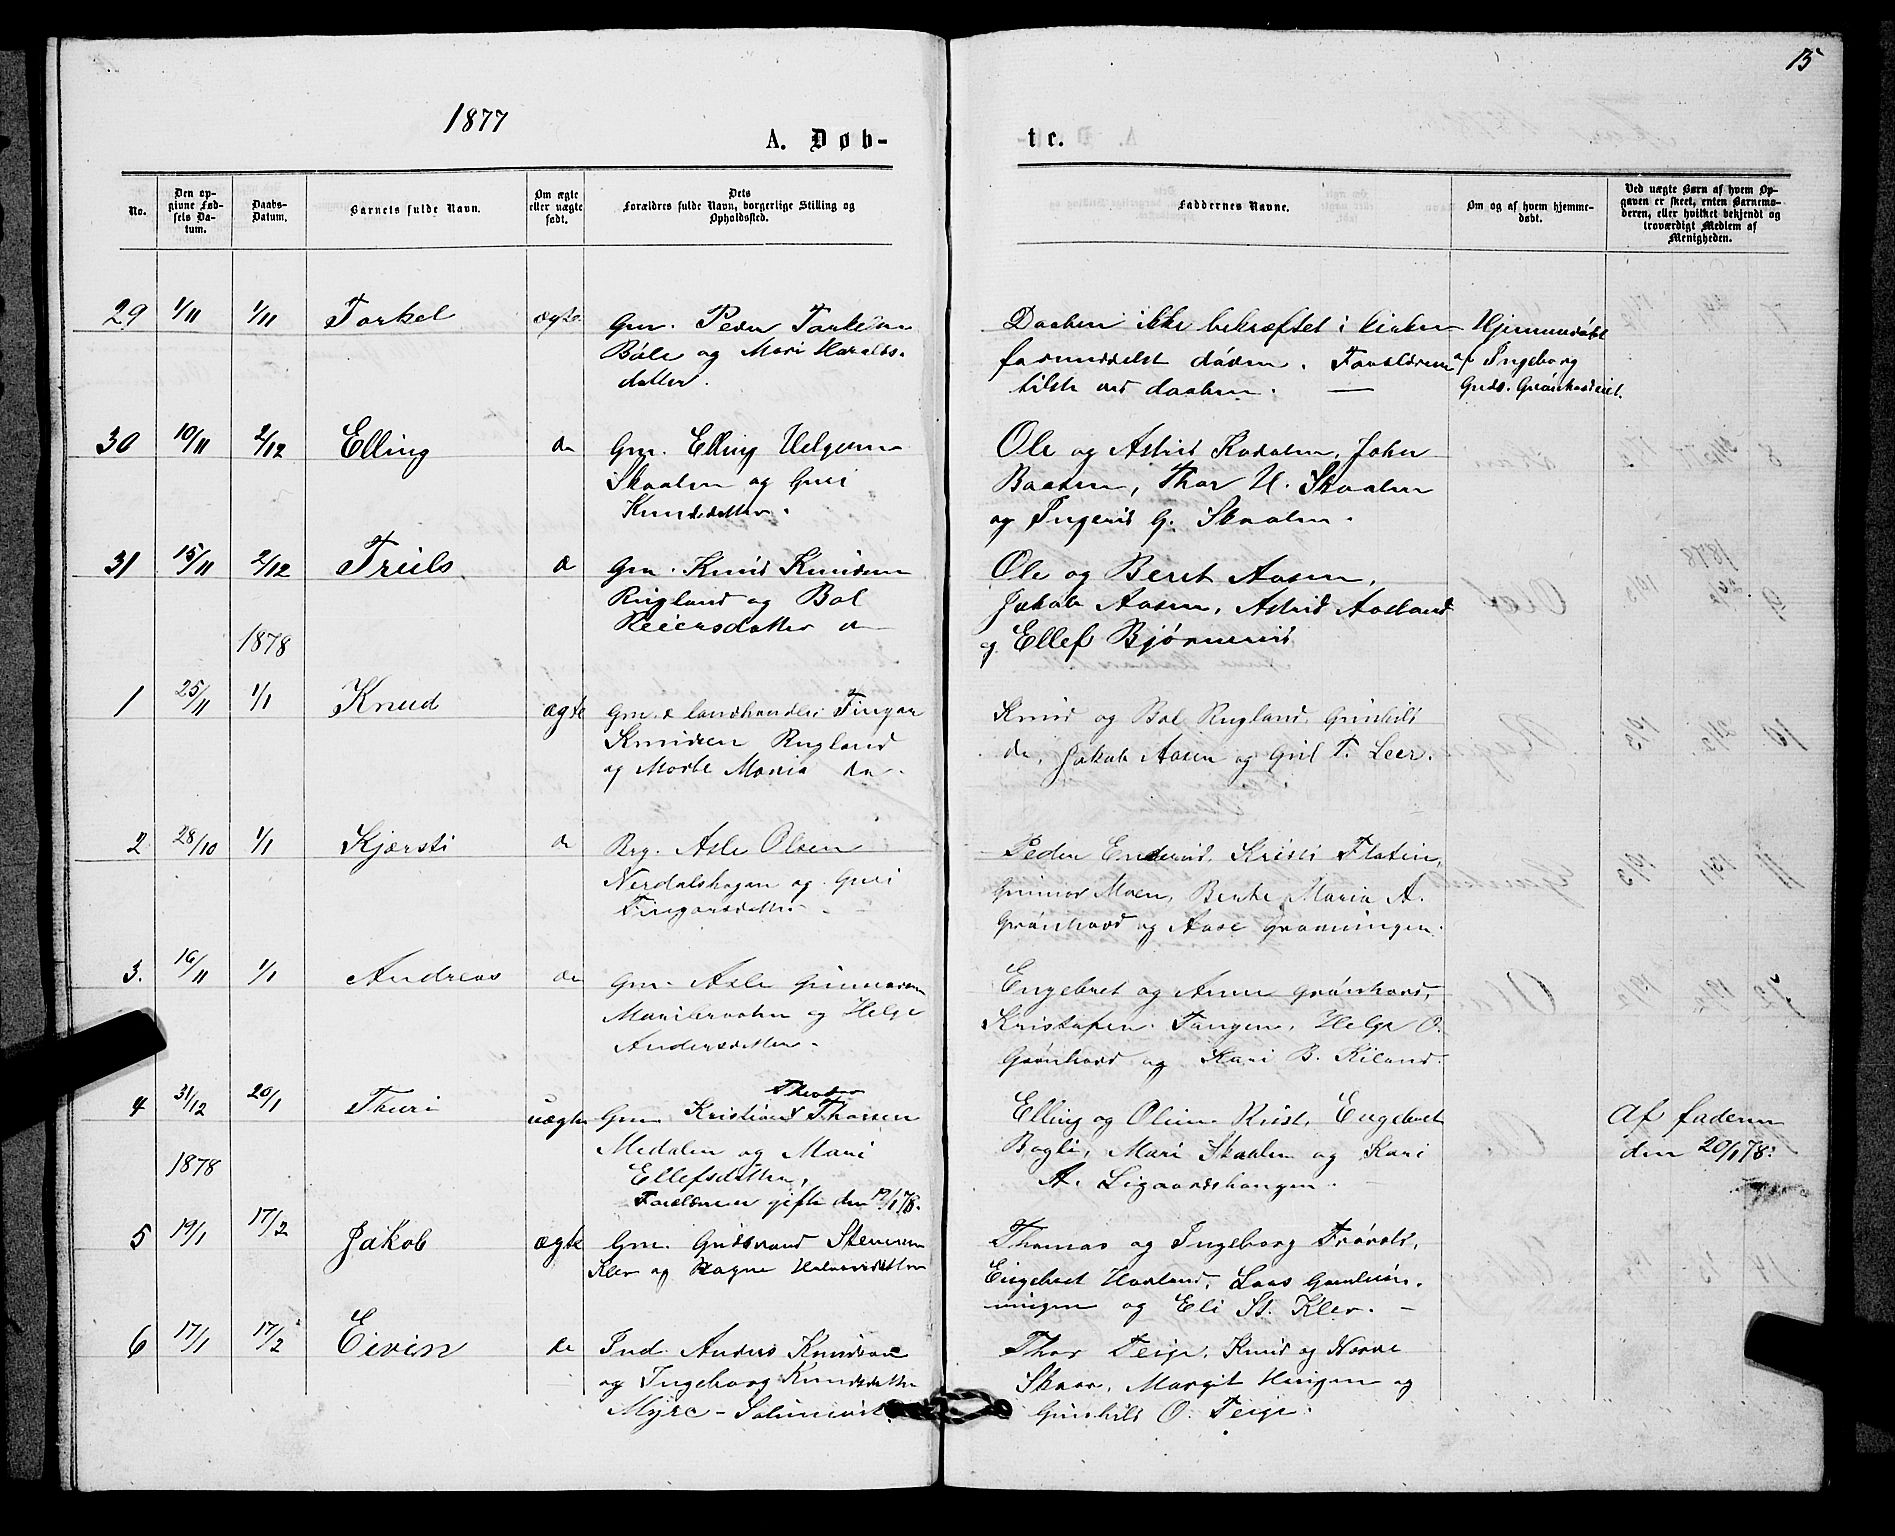 15
1877
A. Døb-
te.
No.
Den op-
givne Fød-
sels Da-
tum.
Daabs-
Datum.
Barnets fulde Navn.
Om ægte
eller uægte
født.
Dets
Forældres fulde Navn, borgerlige Stilling og
Opholdssted.
Faddernes Navne.
Om og af hvem hjemme-
døbt.
Ved uægte Børn af hvem Op-
gaven er skeet, enten Barnemo-
deren, eller hvilket bekjendt og
troværdigt Medlem af
Menigheden.
29 1/11 1/11 Torkel ægte
Gm. Peder Torkelsen
Båle og Mari Haralds-
datter.
Daaben ikke bekræftet i kirken
formedelst døden. Forældrene
tilste ved daaben. —
Hjemmedøbt
af Ingeborg
Guds. Grønhovdeiet.
30 10/11 2/12 Elling do
Gm. Elling Helgesen
Skaalen og Guri
Knudsdatter.
Ole og Astrid John
Baasen, Thor H. Skaalen
og Ingerid G. Skaalen.
31 15/11 2/12 Truls do
Gm. Knud Knudsen
Rugland og Bol
Reiersdatter do
Ole og Beret Aasen,
Jakob Aasen, Astrid Aasland
og Ellef Bjørnerud
1878
1 25/11 1/1 Knud ægte
Gm. & landhandler Fingar
Knudsen Rugland
og Marte Maria do.
Knud og Bol Rugland, Gunhild
do, Jakob Aasen og Guri T. Leer.
2 28/10 1/1 Kjærsti do
Brg. Asle Olsen
Nerdalshagen og Guri
Fingarsdatter.
Peder Enderud, Kristi Flaten,
Gunnar Moen, Berthe Maria A.
Grønhovd og Aase Grønningen.
3. 16/11 1/1 Andreas do
Gm. Asle Gunnarsen
og Helge
Andersdatter.
Engebret og Anne Grønhovd,
Kristofer Tangen, Helge O.
Grønhovd og Kari B. Kiland.
4 31/12 20/1 Thuri uægte
Gm Kristian Thorsen
Medalen og Mari
Ellefsdatter,
Forældrene gifte den 19/1 78.
Elling og Oline Engebret
Bagli, Mari Skaalen og Kari
A. Ligaardshaugen.
Af faderen
den 20/1 78.
1878
5 19/1 17/2 Jakob ægte
Gm. Gudbrand Stenersen
Klev og Ragne Halvorsdatter
Thomas og Ingeborg
Engebret Haaland, Lars
og Eli St. Klev. —
6 17/1 17/2 Eivin do
Ind. Anders Knudsen
og Ingeborg Knudsdatter
Myre-
Thor Teige, Knud og
Skaar, Margit Haugen og
Gunhild O. Teige.